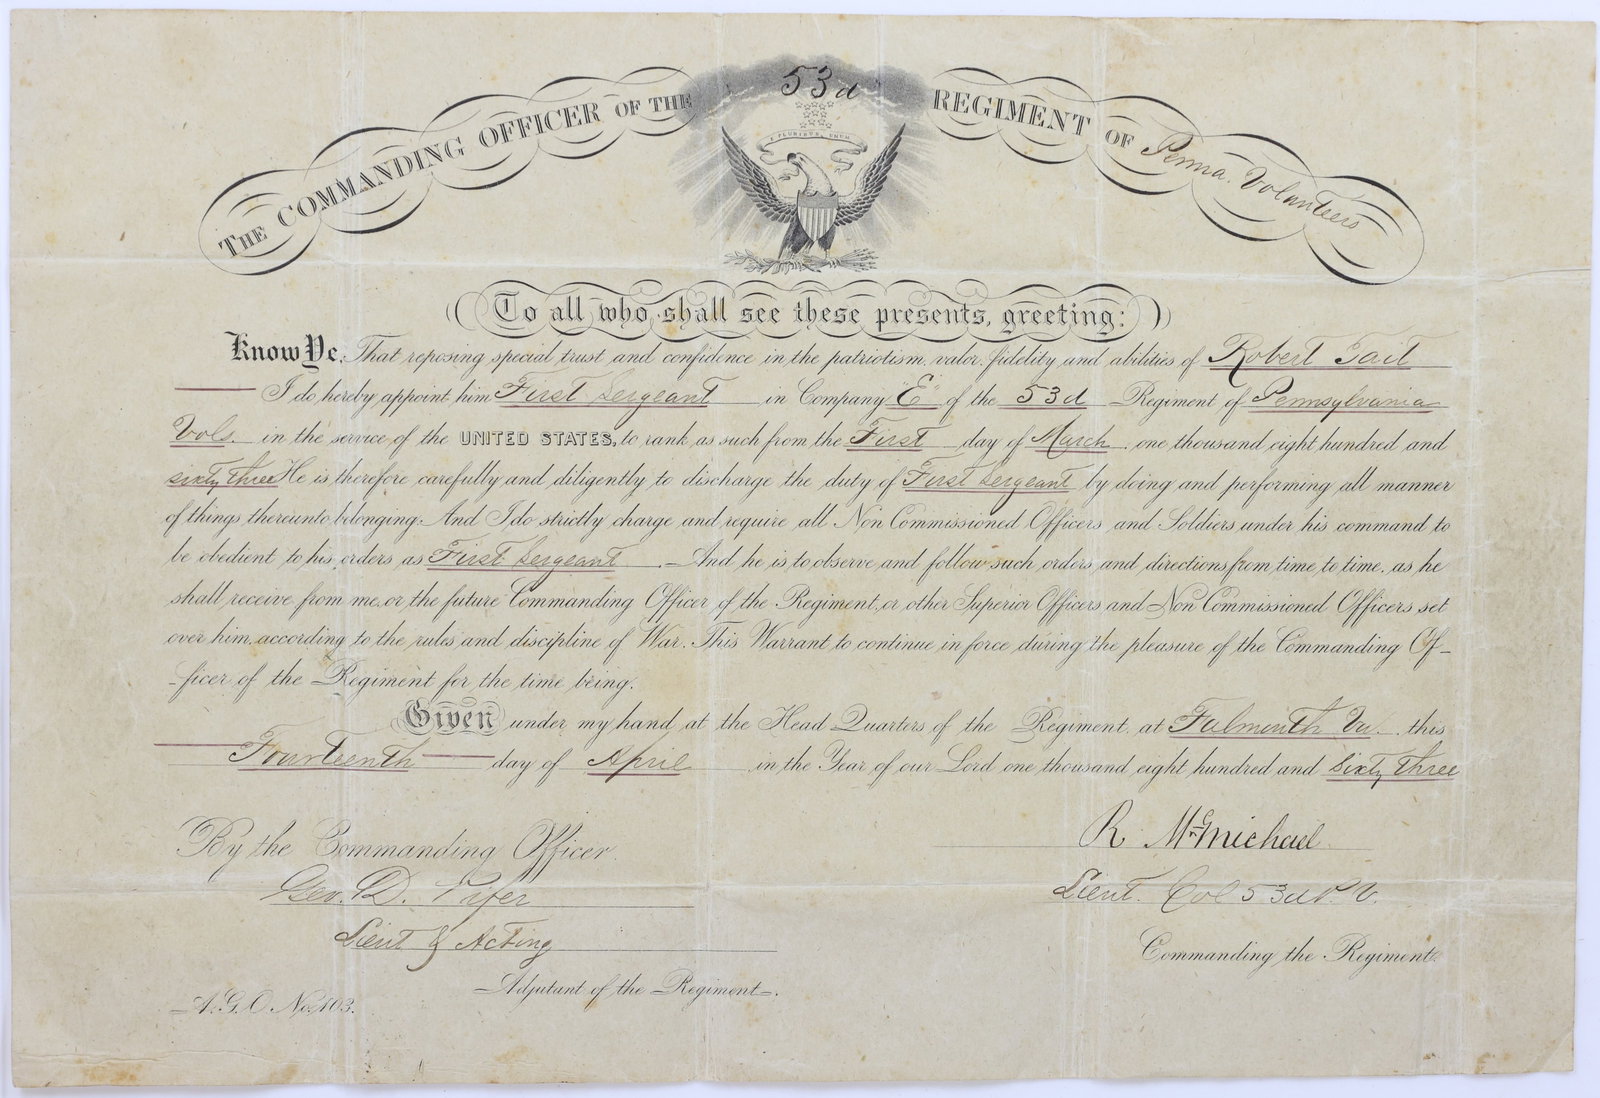 THE COMMANDING OFFICER OF THE 53d REGIMENT OF Penna. Volunteers
E PLURIBUS UNUM
To all who shall see these presents, greeting:
Know Ye, That reposing special trust and confidence in the patriotism, valor, fidelity and abilities of Robert Tait
I do hereby appoint him First Sergeant in Company "E" of the 53d Regiment of Pennsylvania
Vols. in the service of the UNITED STATES, to rank as such from the First day of March, one thousand eight hundred and
sixty three He is therefore carefully and diligently to discharge the duty of First Sergeant by doing and performing all manner
of things thereunto belonging. And I do strictly charge and require all Non Commissioned Officers and Soldiers under his command to
be obedient to his orders as First Sergeant. And he is to observe and follow such orders and directions from time to time, as he
shall receive from me, or the future Commanding Officer of the Regiment, or other Superior Officers and Non Commissioned Officers set
over him, according to the rules and discipline of War. This Warrant to continue in force during the pleasure of the Commanding Of-
-ficer of the Regiment for the time being.
Given under my hand at the Head Quarters of the Regiment, at Falmouth Va. this
Fourteenth day of April in the Year of our Lord one thousand eight hundred and Sixty three
By the Commanding Officer.
R McMichael
Geo. D. Pifer
Lieut. Col 53d P. V.
Lieut & Acting
Commanding the Regiment.
Adjutant of the Regiment.
A.G.O. No. 103.